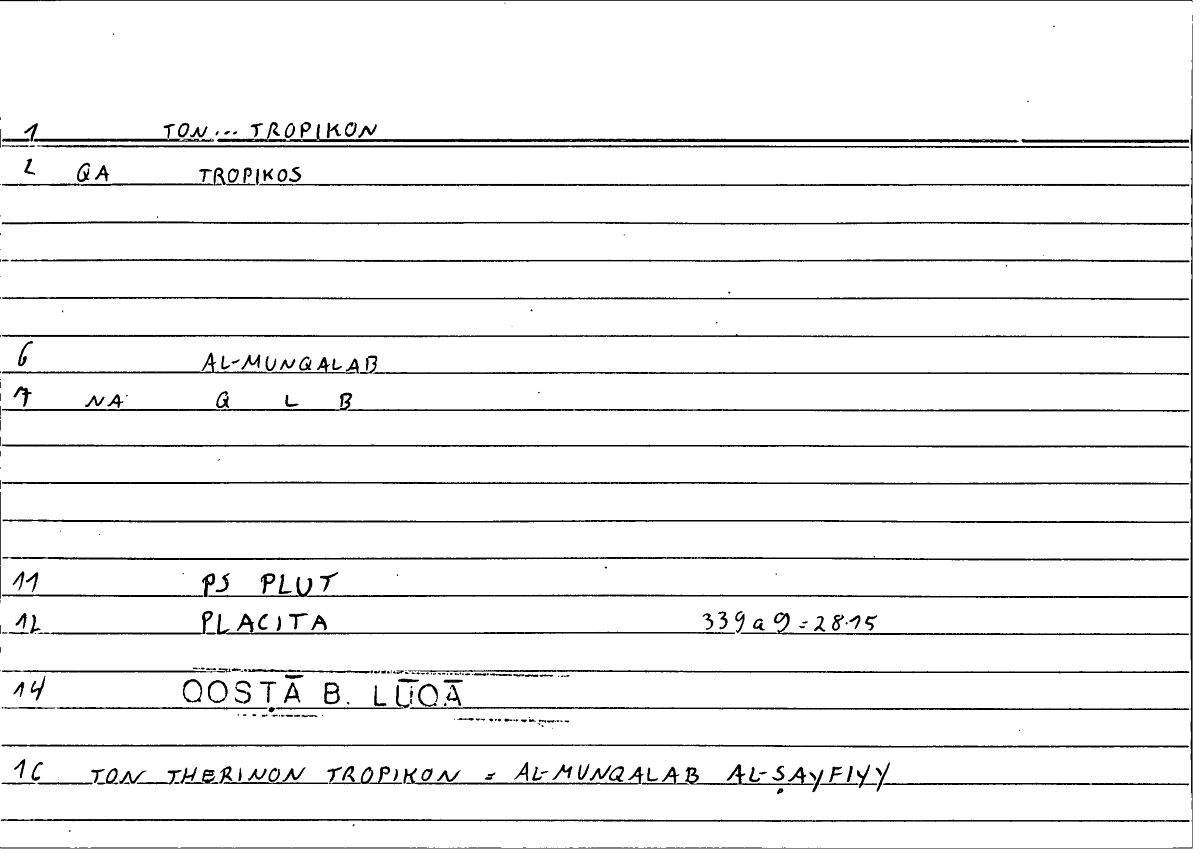 1 TON... TROPIKON
2 QA TROPIKOS
6 AL-MUNQALAB
7 NA Q L B
11 PS PLUT
12 PLACITA 339a9=28.15
14 QOSṬĀ B. LŪQĀ
16 TON THERINON TROPIKON = AL-MUNQALAB AL-ṢAYFIYY